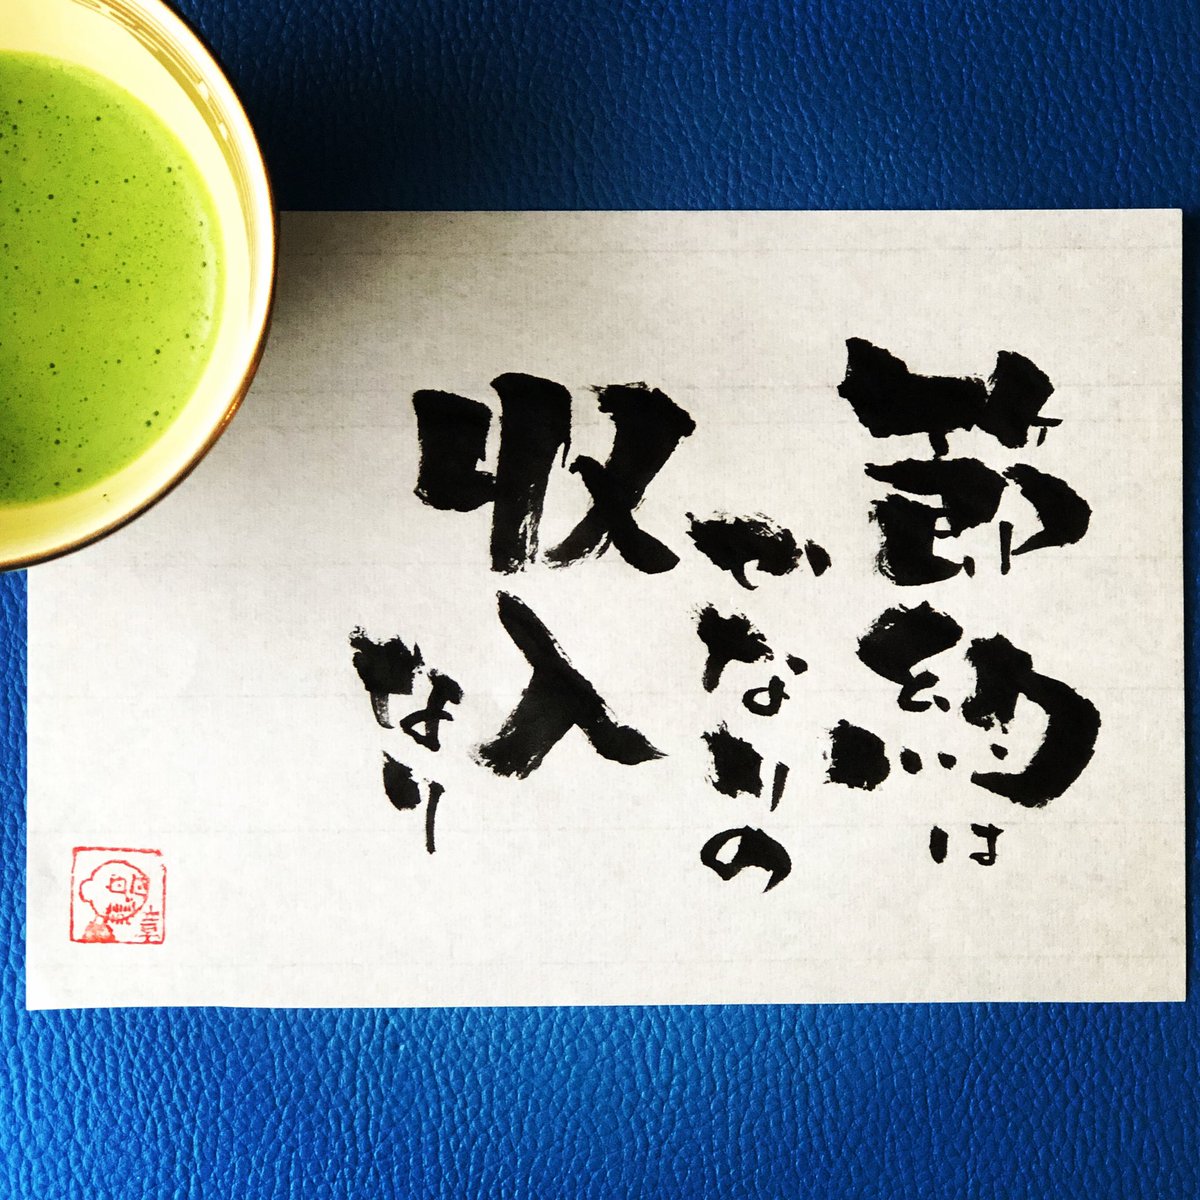 節約は
かなりの
収入
なり